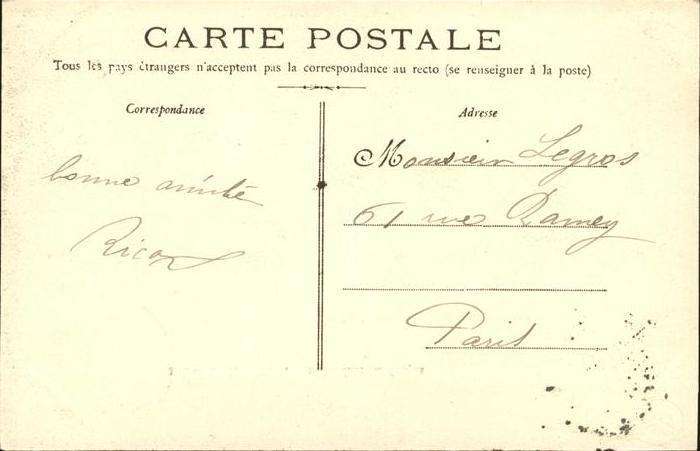 CARTE POSTALE
Tous les pays étrangers n'acceptent pas la correspondance au recto (se renseigner à la poste)
Correspondance
Adresse
bonne amitié
Monsieur Legros
61 rue Ramey
Paris